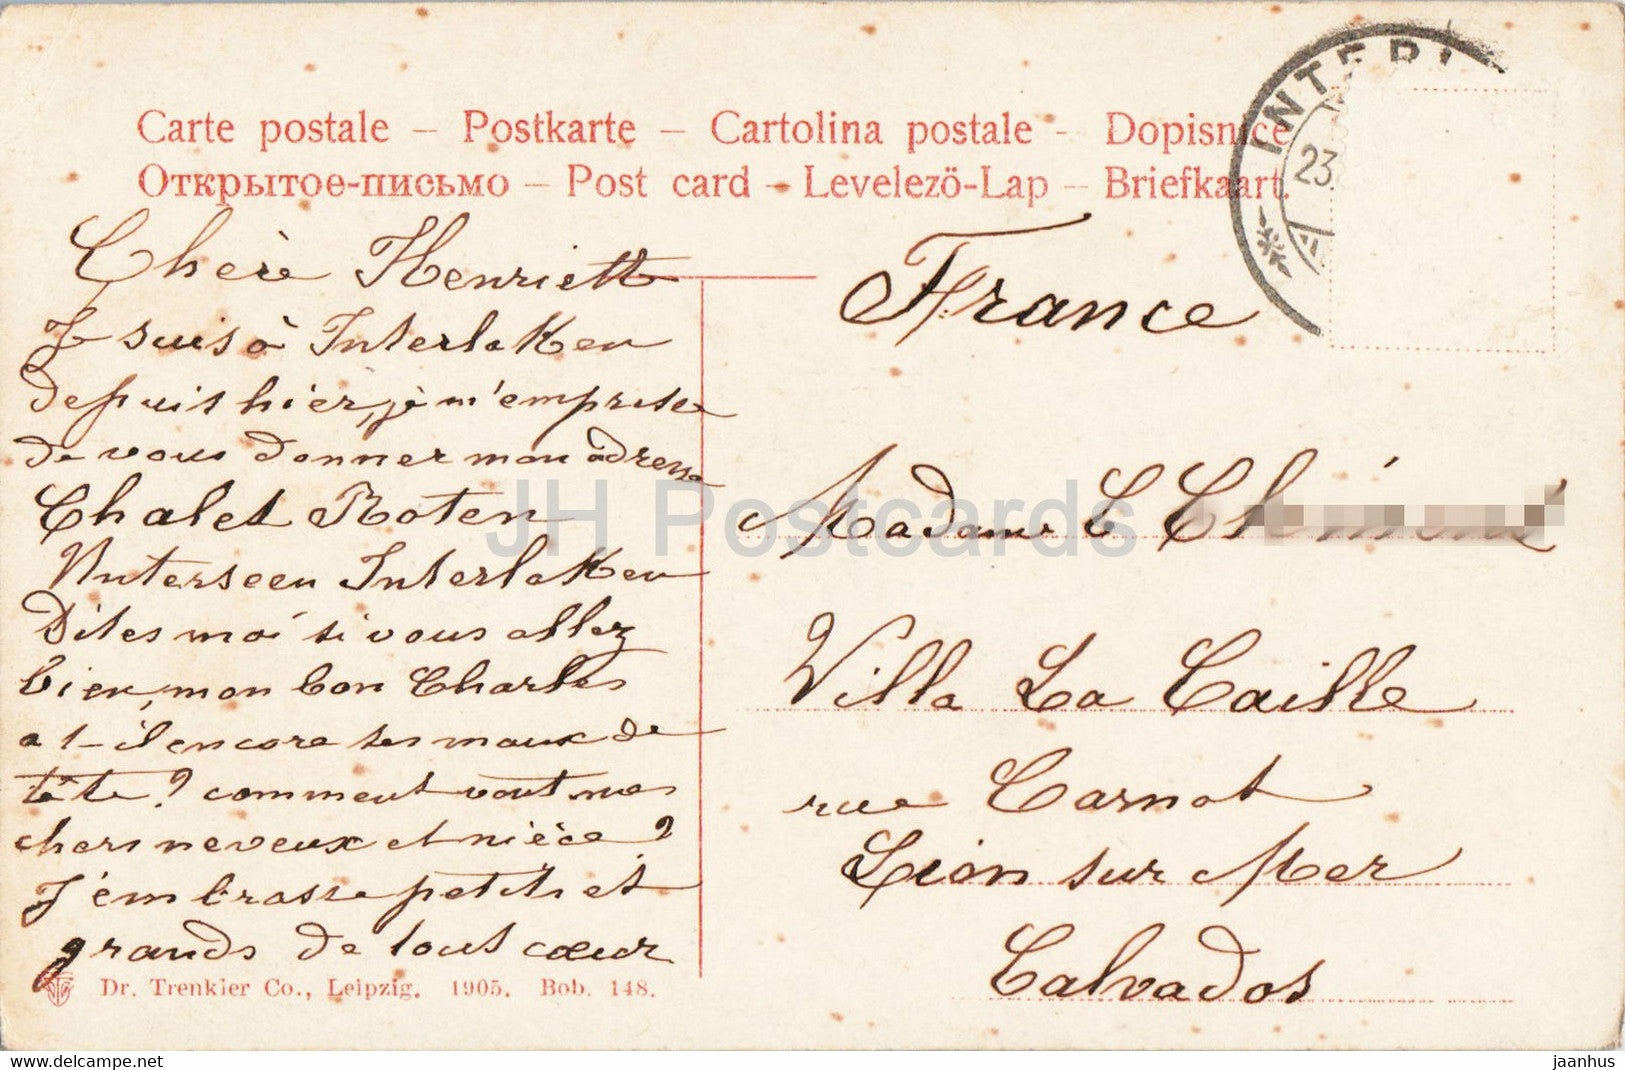 Carte postale – Postkarte – Cartolina postale - Dopisnice
Открытое-письмо – Post card – Levelezö-Lap – Briefkaart.
INTERL
23.
Chère Henriett
Je suis à Interlaken
depuis hier, je m'emprese
de vous donner mon adresse
Chalet Roten
Unterseen Interlaken
Dites moi si vous allez
bien, mon bon Charles
a t-il encore ses maux de
tête? comment vont mes
chers neveux et nièce?
J'embrasse petits et
grands de tout cœur
Dr. Trenkler Co., Leipzig. 1905. Bob. 148.
France
Madame C
Villa La Caille
rue Carnot
Lion sur Mer
Calvados
JH Postcards
delcampe.net
jaanhus